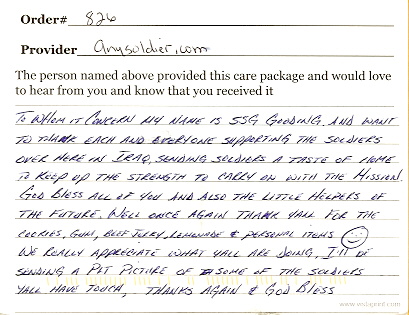 Order# 826
Provider anysoldier.com
The person named above provided this care package and would love
to hear from you and know that you received it
To Whom it Concern my name is SSG Gooding and want
to thank each and everyone supporting the soldiers
over here in Iraq, sending soldiers a taste of home
to keep up the strength to carry on with the Mission.
God Bless all of you and also the little Helpers of
the future. Well once again thank yall for the
cookies, Gum, Beef Jerky, Lemonade & personal items
We really appreciate what yall are doing, I'll be
sending a Plt Picture of some of the soldiers
yall have touch, thanks again & God Bless
www.vistaprint.com